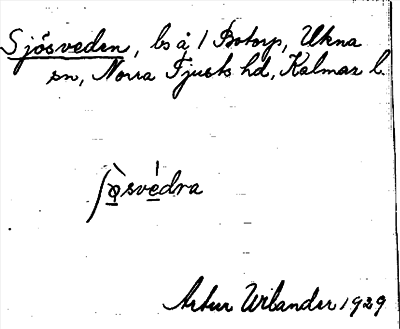 Sjösveden, ls å 1 Botorp, Ukna
sn, Norra Tjusts hd, Kalmar l.
ʃø̀svédra
Artur Wilander 1929